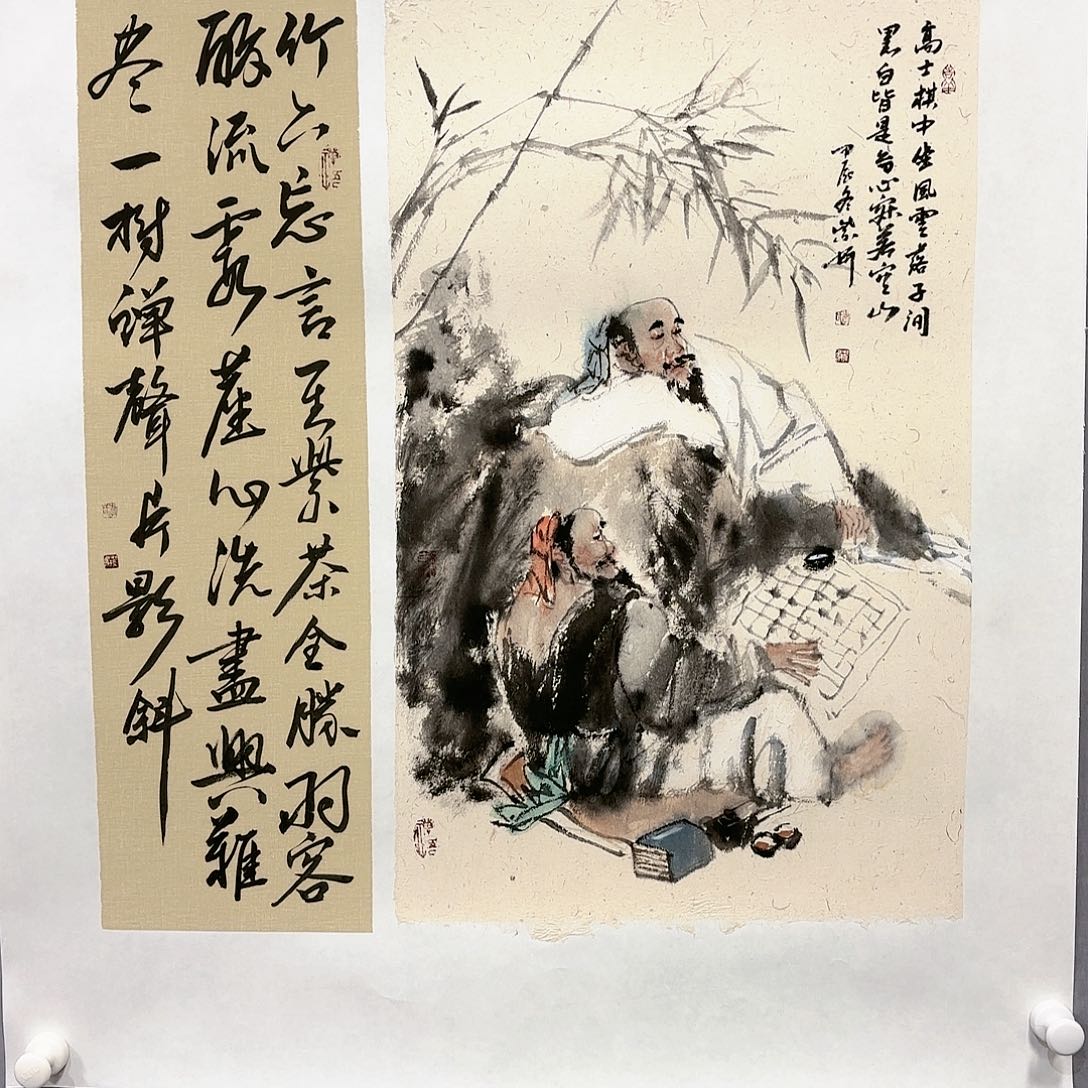 高士棋中坐風雲落子间
黑白皆是心寂若空山
甲辰冬紫
竹下忘言对紫茶全勝羽客
醉流霞塵心洗盡興難
尽一樹蟬聲片影斜